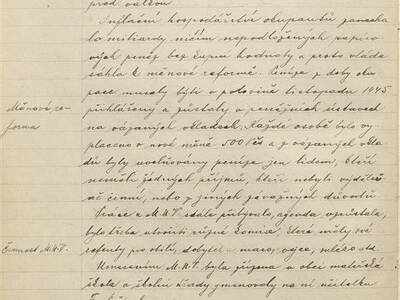 před válkou.
Inflační hospodářství okupantů zanechalo
miliardy ničím nepodložených papírových
peněz bez kupní hodnoty a proto vláda
sáhla k měnové reformě. Peníze z doby oku
pace musely býti v polovině listopadu 1945
Měnová re-
forma
přihlášeny a zůstaly v peněžních ústavech
na vázaných vkladech. Každé osobě bylo vy
placeno v nové měně 500 Kčs a z vázaných vkla
dů byly uvolňovány peníze jen lidem, kteří
neměli žádných příjmů, kteří nebyli výděleč
ně činní, nebo z jiných závažných důvodů.
Práce v M.N.V. stále přibývalo, agenda vzrůstala,
bylo třeba utvořiti různé komise, které měly své
Činnost M.N.V.
referenty pro obilí, dobytek a maso, vejce, mléko atd.
Usnesením M.N.V. byla zřízena v obci mateřská
škola a školní úřady jmenovaly na ni učitelku